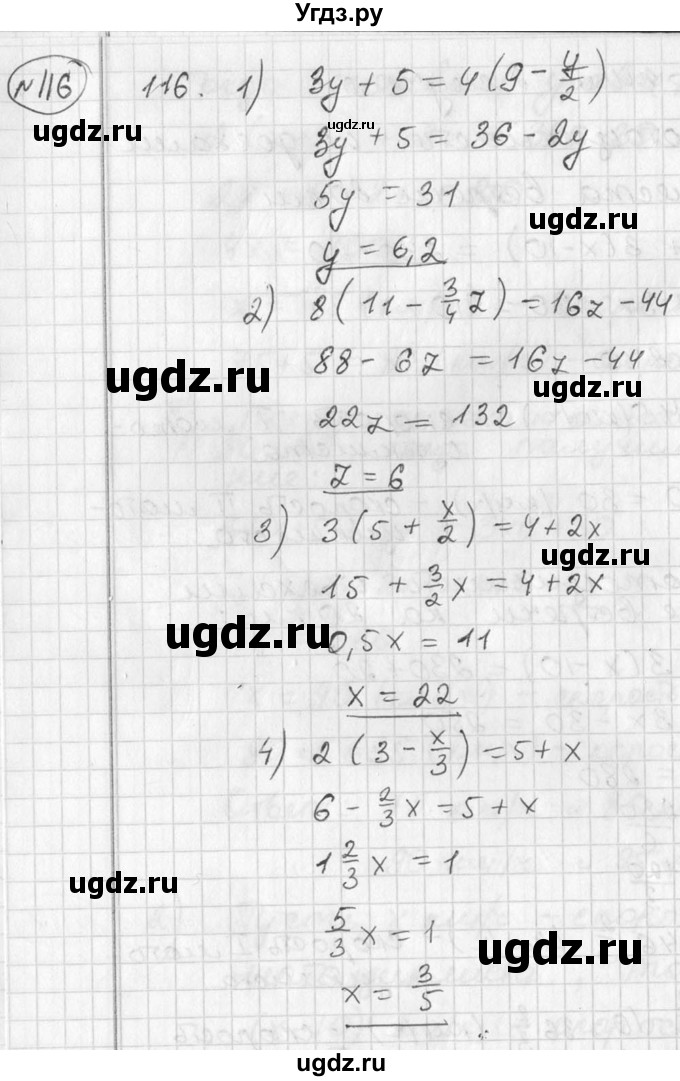 Угдз.ру
№116
116. 1) 3y + 5 = 4(9 - y/2)
ugdz.ru
3y + 5 = 36 - 2y
5y = 31
ugdz.ru
y = 6,2
2) 8(11 - 3/4 z) = 16z - 44
ugdz.ru
88 - 6z = 16z - 44
ugdz.ru
22z = 132
z = 6
3) 3(5 + x/2) = 4 + 2x
ugdz.ru
15 + 3/2 x = 4 + 2x
ugdz.ru
0,5x = 11
x = 22
4) 2(3 - x/3) = 5 + x
6 - 2/3 x = 5 + x
1 2/3 x = 1
ugdz.ru
5/3 x = 1
ugdz.ru
x = 3/5
ugdz.ru